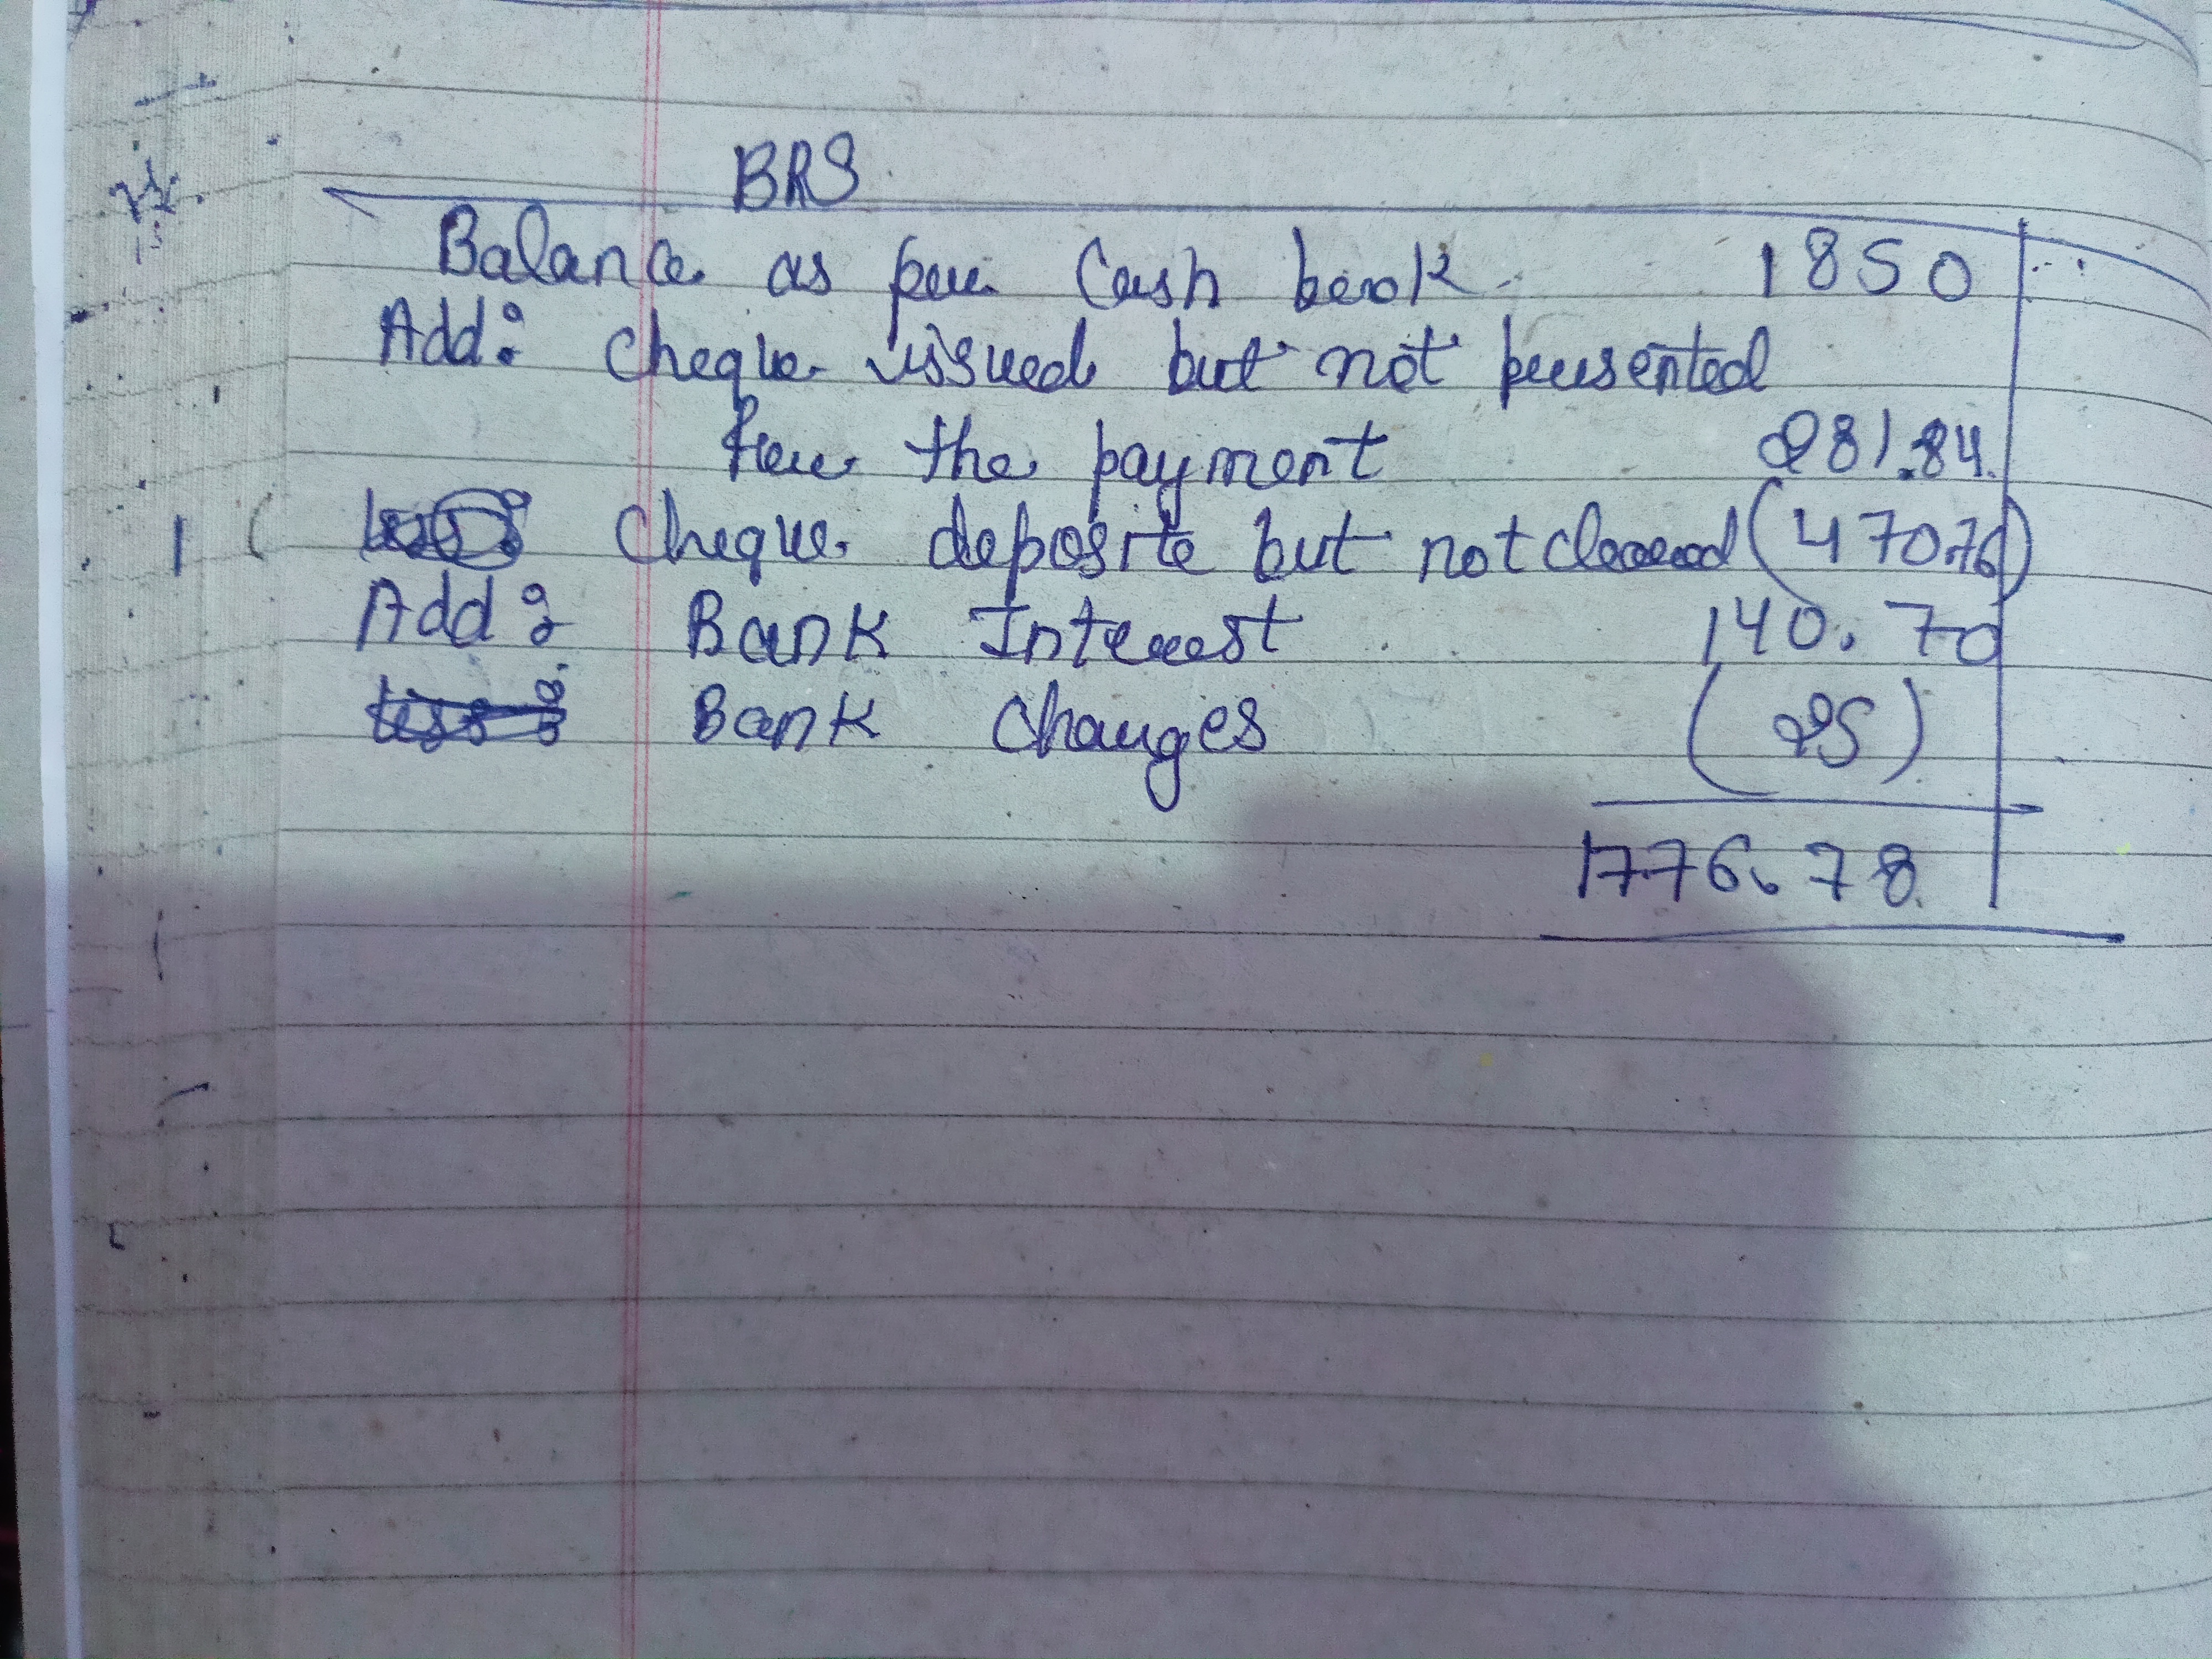 BRS
Balance as per Cash book 1850
Add: Cheque issued but not presented
For the payment 281.84
Cheque deposite but not cleared (470.76)
Add: Bank Interest 140.70
Bank Charges (25)
1776.78